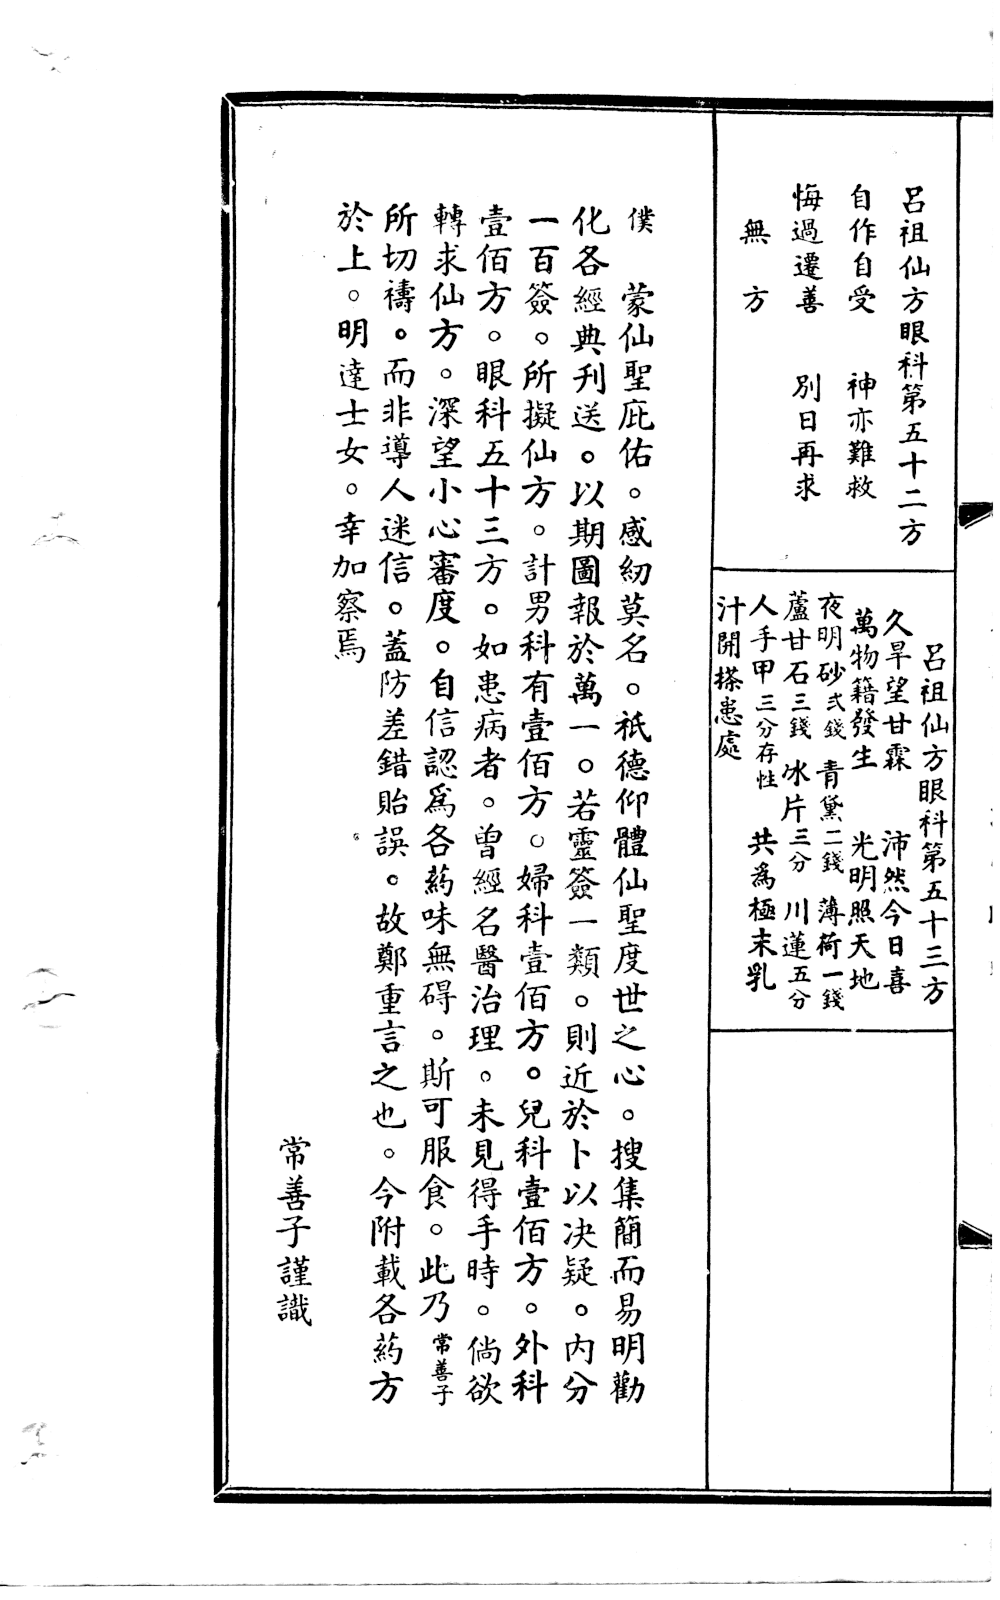 呂祖仙方眼科第五十二方
自作自受　神亦難救
悔過遷善　別日再求
無　方
呂祖仙方眼科第五十三方
久旱望甘霖　沛然今日喜
萬物籍發生　光明照天地
夜明砂弍錢　青黛二錢　薄荷一錢
蘆甘石三錢　冰片三分　川蓮五分
人手甲三分存性　共為極末乳
汁開搽患處
僕　蒙仙聖庇佑。感紉莫名。祇德仰體仙聖度世之心。搜集簡而易明勸
化各經典刋送。以期圖報於萬一。若靈簽一類。則近於卜以决疑。內分
一百簽。所擬仙方。計男科有壹佰方。婦科壹佰方。兒科壹佰方。外科
壹佰方。眼科五十三方。如患病者。曾經名醫治理。未見得手時。倘欲
轉求仙方。深望小心審度。自信認爲各葯味無碍。斯可服食。此乃常善子
所切禱。而非導人迷信。蓋防差錯貽誤。故鄭重言之也。今附載各葯方
於上。明達士女。幸加察焉
常善子謹識